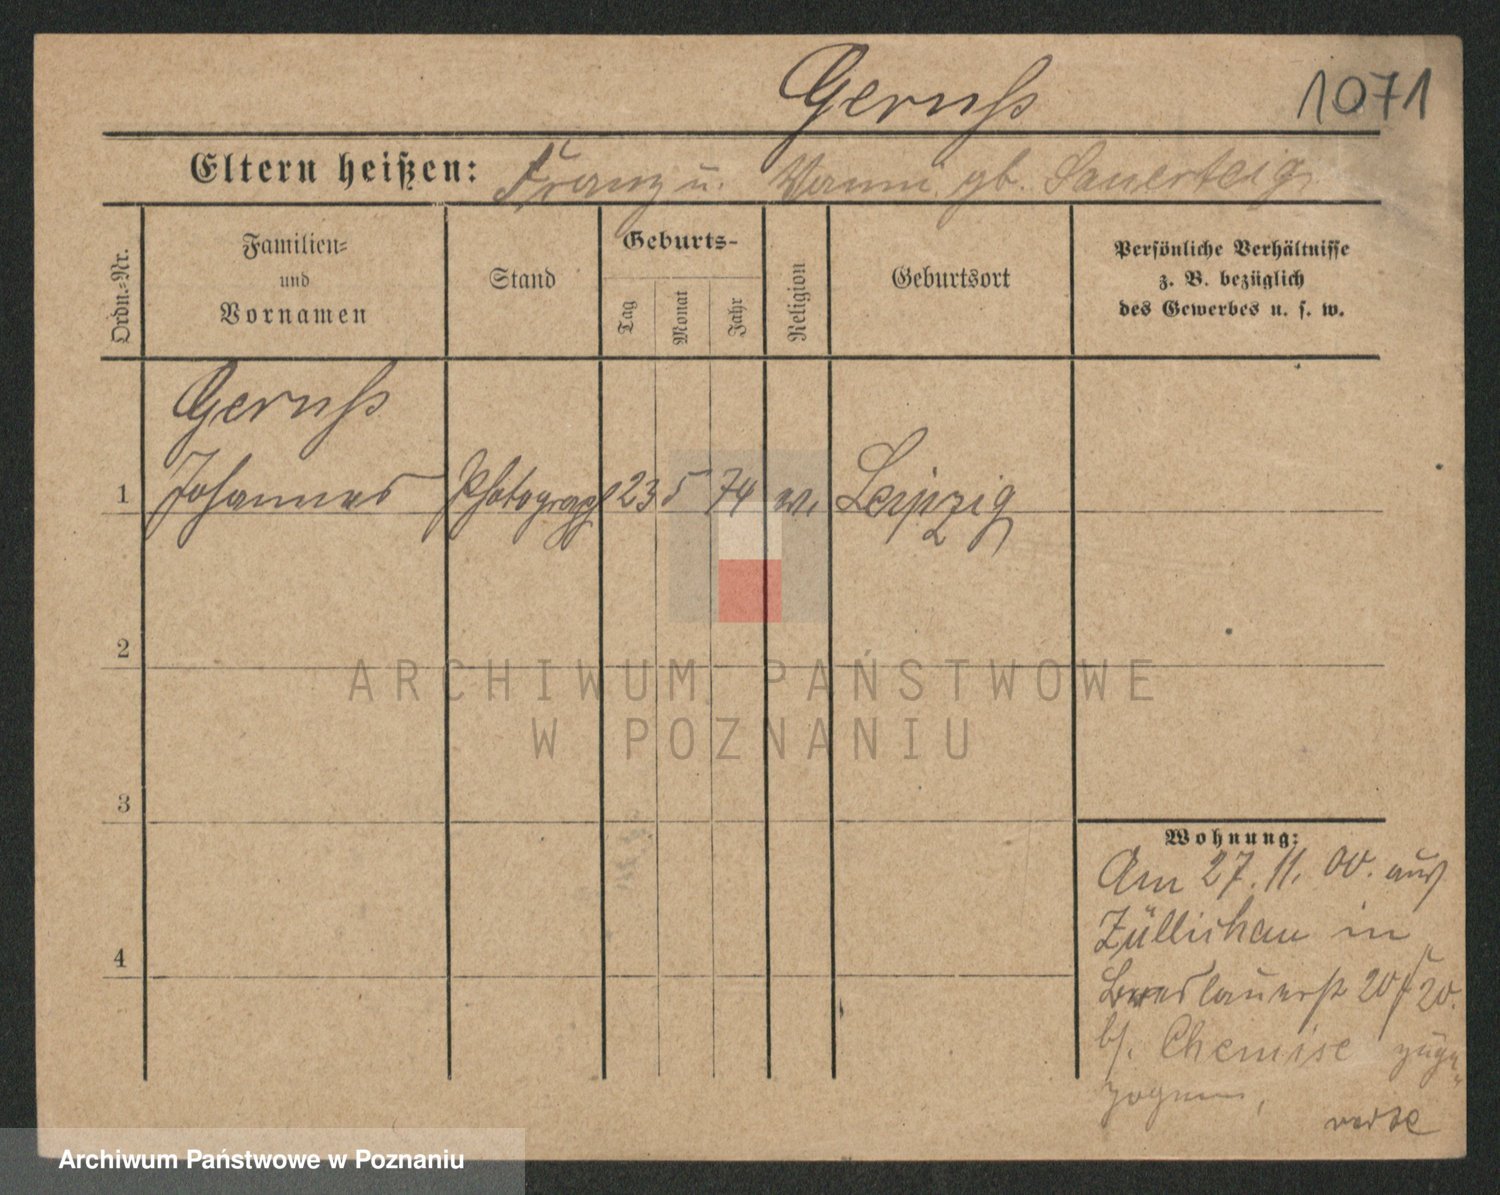 Geruß
1071
Eltern heißen: Franz u. Wanni gb. Sauerteig
Ordn.=Nr.
Familien=
und
Vornamen
Stand
Geburts-
Tag
Monat
Jahr
Religion
Geburtsort
Persönliche Verhältnisse
z. B. bezüglich
des Gewerbes u. s. w.
Geruß
1 Johannes Photograph 23 5 74 ev. Leipzig
2
3
4
Wohnung:
Am 27. 11. 00. aus
Züllichau in
Breslauerst 20
b/. Chemise zuge=
zogen,
ARCHIWUM PAŃSTWOWE
W POZNANIU
Archiwum Państwowe w Poznaniu